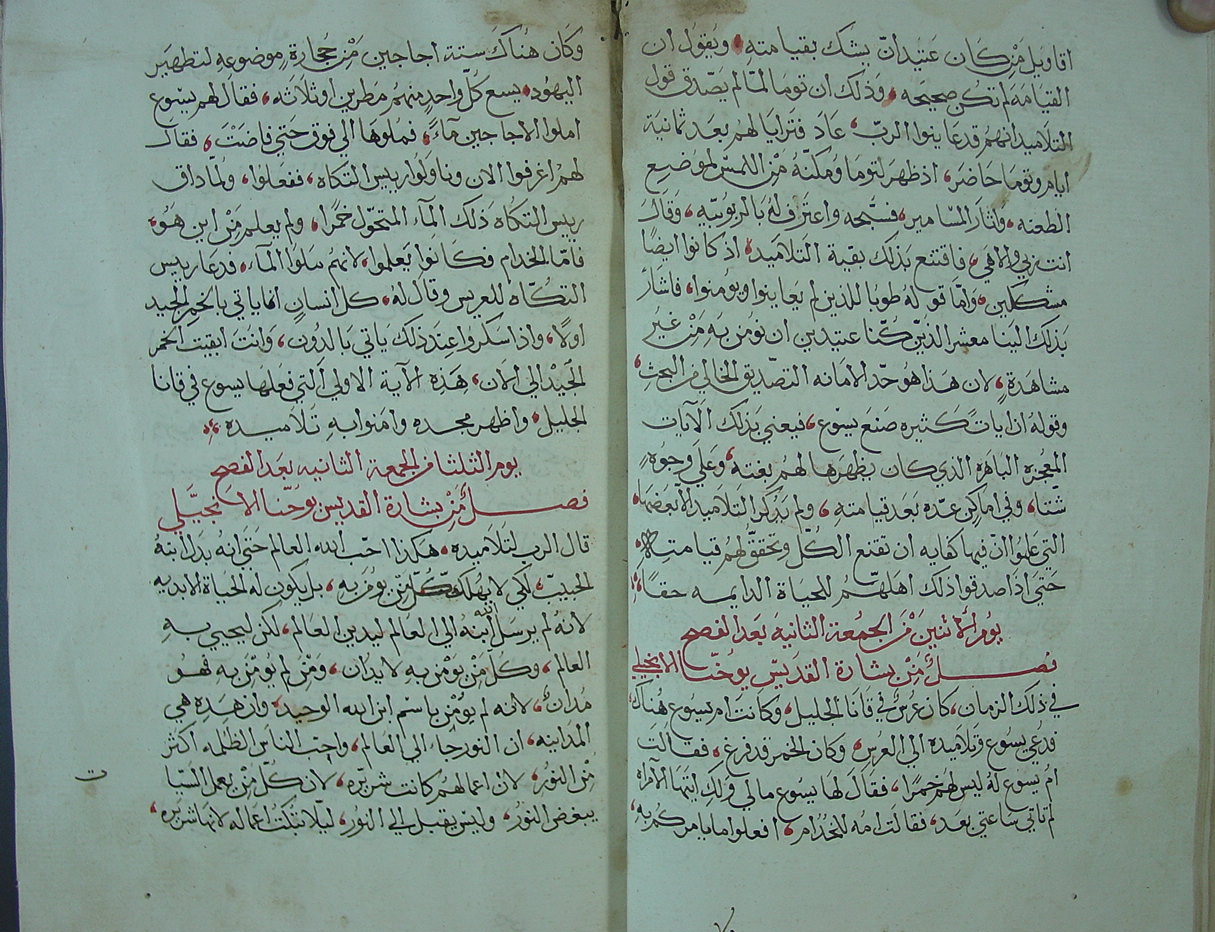 اقاويل مَن كان عتيدان يشك بقيامته، ويقول ان
القيامة لم تكن صحيحه، وذلك ان توما لمّا لم يصدق قول
التلاميذ انهم قد عاينوا الرب، عاد فترايا لهم بعد ثمانية
ايام وتوما حاضر، اذ ظهر لتوما ومكنّه من اللمس لموضع
الطعنه، ولثار المسامير، فسبّحه واعترف له بالربوبيه، وقال
انت ربي والاهي، فاقتنع بذلك بقية التلاميذ، اذ كانوا ايضًا
مشككين، وامّا قوله طوبا للذين لم يعاينوا ويومنوا، فاشار
بذلك الينا معشر الذين كنّا عتيدين ان نومن به من غير
مشاهدةٍ، لان هذا هو حدّ الامانه التصديق الخالي من البحث،
وقوله ان ايات كثيره صنع يسوع، فيعني بذلك الآيات
المعجزه الباهره الذي كان يظهرها لهم بغته، وعلي وجوهٍ
شتّا، وفي اماكن عدّه بعد قيامته، ولم يذكر التلاميذ الا بعضها،
التي علموا ان فيها كفايه ان تقنع الكُلّ وتحقق لهم قيامته،
حتي اذا صدقوا ذلك اهلهم للحياة الدايمه حقا،
يوم الاثنين من الجمعة الثانية بعد الفصح
فصل من بشارة القديس يوحنّا الانجيلي
في ذلك الزمان، كان عرسٌ في قانا الجليل، وكانت ام يسوع هناك،
فدعي يسوع وتلاميذه الي العرس، وكان الخمر قد فرغ، فقالت
ام يسوع له ليس لهم خمرًا، فقال لها يسوع مالي ولكِ ايتها الامراه
لم تاتي ساعتي بعد، فقالت امه للخدام، افعلوا ما يامركم به،
وكان هناك ستة اجاجين من حجارةٍ موضوعه لتطهير
اليهود، يسع كلّ واحدٍ منهم مطرين او ثلاثه، فقال لهم يسوع
املوا الاجاجين مآءً، فملوها الي فوق حتي فاضت، فقال
لهم اغرفوا الان وناولوا رييس المتكاه، ففعلوا، ولمّا ذاق
رييس المتكاه ذلك المآء المتحوّل خمرًا، ولم يعلم من اين هو،
فامّا الخدام فكانوا يعلموا، لانهم ملوا المآء، فدعا رييس
التكّاه للعريس وقال له، كل انسانٍ انما ياتي بالخمر الجيد
اولًا، واذا سكروا عند ذلك ياتي بالدون، وانت ابقيت الخمر
الجيد الي الان، هذه الآية الاولي التي فعلها يسوع في قانا
الجليل، واظهر مجده وامنوا به تلاميذه
يوم الثلثا من الجمعة الثانيه بعد الفصح
فصل من بشارة القديس يوحنّا الانجيلي
قال الرب لتلاميذه، هكذا احب الله العالم حتي انه بدل ابنه
الحبيب، لكي لا يهلك كلّ من يومن به، بل يكون له الحياة الابديه
لانه لم يرسل الله ابنه الي العالم ليدين العالم، لكن ليحيي به
العالم، وكل من يومن به لا يدان، ومن لم يومن به فهو
مُدان، لانه لم يومن باسم ابن الله الوحيد، ولان هذه هي
المداينه، ان النور جاء الي العالم، واحب الناس الظلمه اكثر
من النور، لان اعمالهم كانت شريره، لان كلّ من يعمل السيا
يبغض النور، وليس يقبل الي النور، ليلا تبكت اعماله لانها شريره،